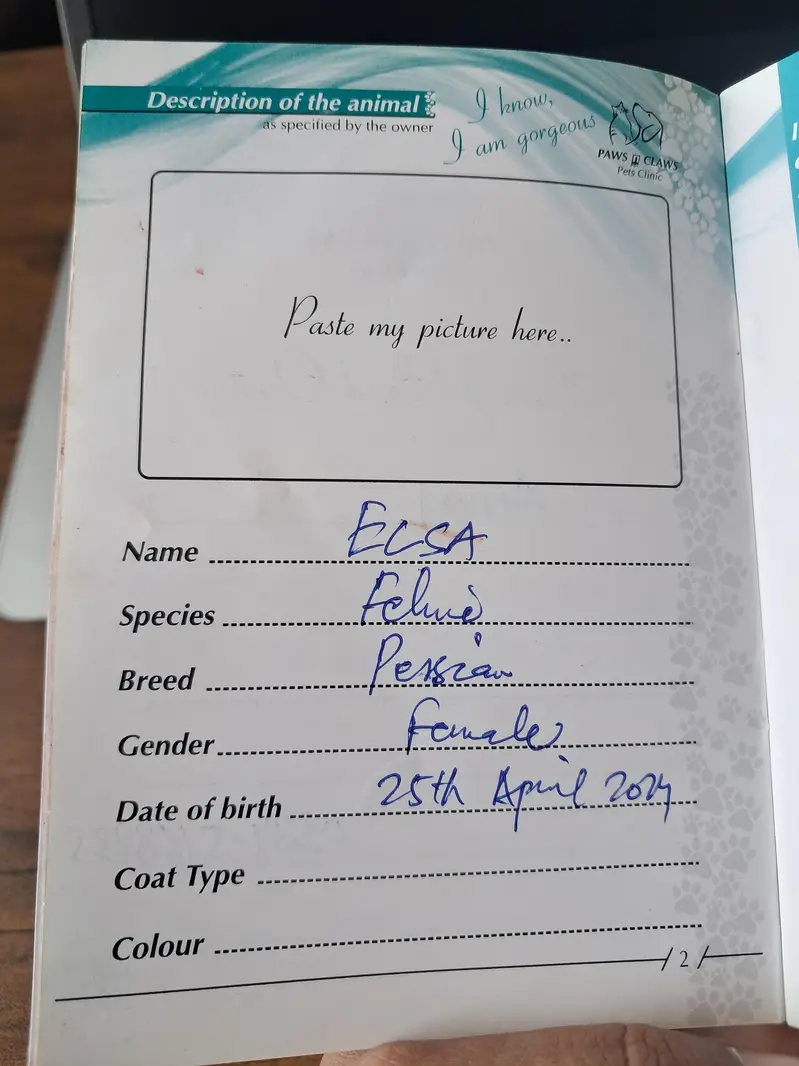 Description of the animal
as specified by the owner
I know,
I am gorgeous
PAWS n CLAWS
Pets Clinic
Paste my picture here..
Name ECSA
Species Feline
Breed Persian
Gender Female
Date of birth 25th April 2024
Coat Type
Colour
2